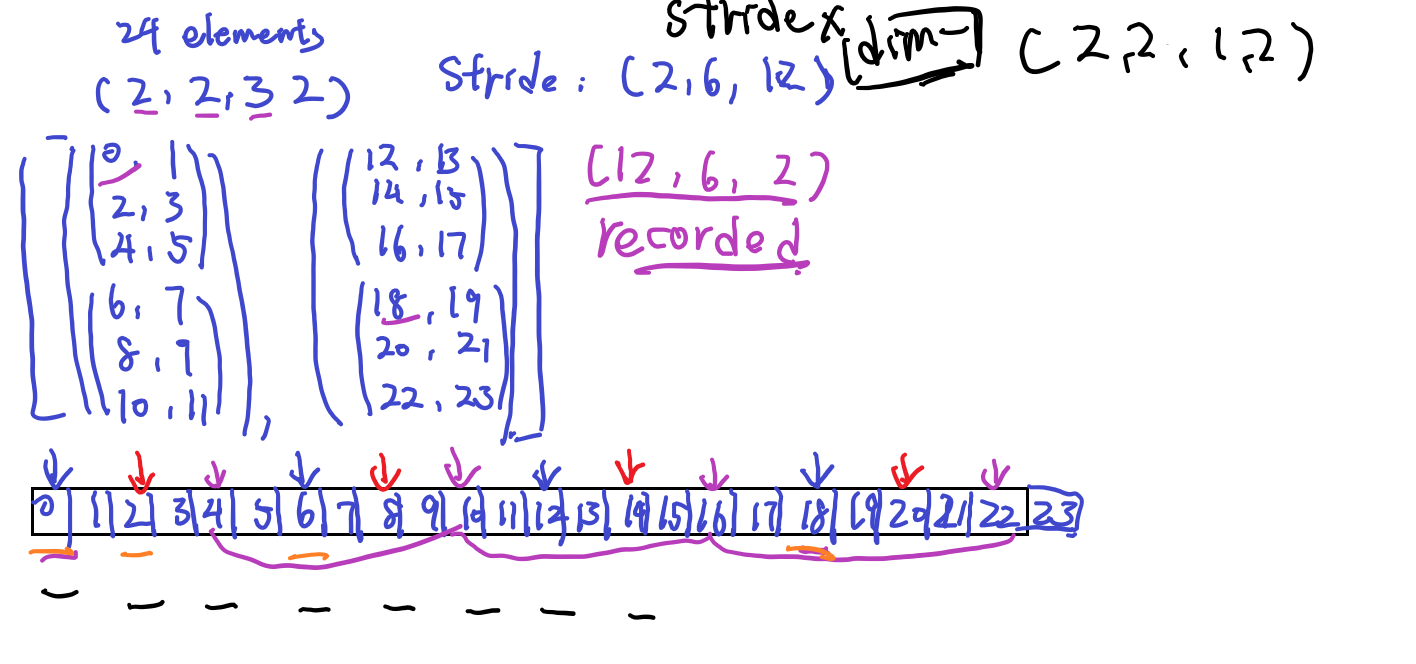 24 elements
(2, 2, 3 2)
Stride : (2, 6, 12)
stride x [dim-] (2, 2, 1, 2)
0, 1
2, 3
4, 5
6, 7
8, 9
10, 11
,
12, 13
14, 15
16, 17
18, 19
20, 21
22, 23
(12, 6, 2)
recorded
0 1 2 3 4 5 6 7 8 9 10 11 12 13 14 15 16 17 18 19 20 21 22 23